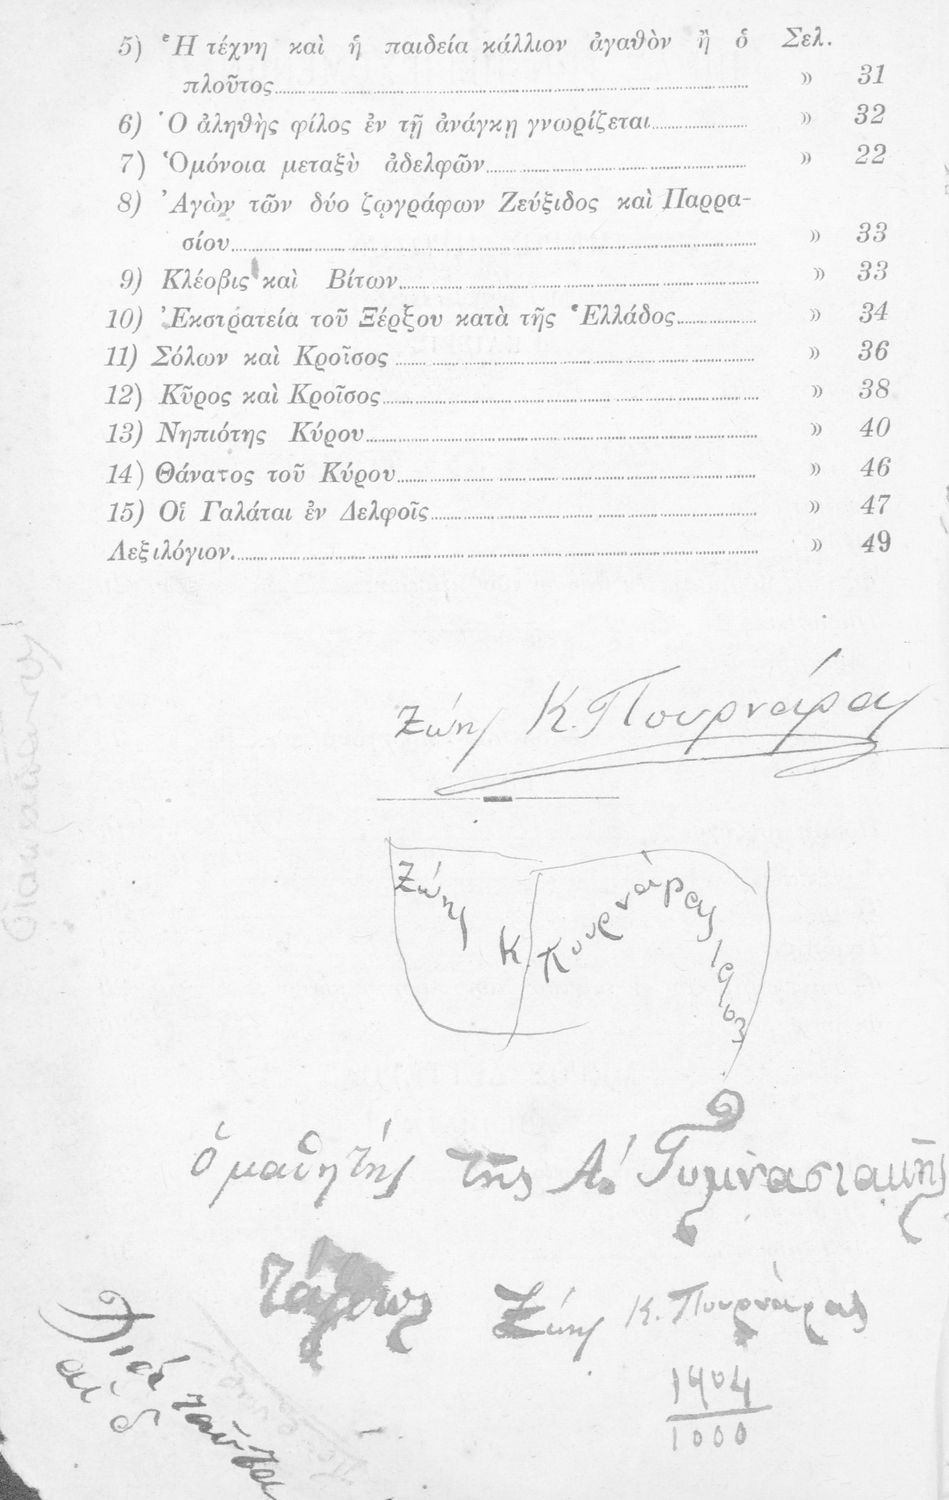 5) Ἡ τέχνη καὶ ἡ παιδεία κάλλιον ἀγαθὸν ἢ ὁ Σελ.
πλοῦτος » 31
6) Ὁ ἀληθὴς φίλος ἐν τῇ ἀνάγκῃ γνωρίζεται » 32
7) Ὁμόνοια μεταξὺ ἀδελφῶν » 22
8) Ἀγὼν τῶν δύο ζῳγράφων Ζεύξιδος καὶ Παρρα-
σίου » 33
9) Κλέοβις καὶ Βίτων » 33
10) Ἐκστρατεία τοῦ Ξέρξου κατὰ τῆς Ἑλλάδος » 34
11) Σόλων καὶ Κροῖσος » 36
12) Κῦρος καὶ Κροῖσος » 38
13) Νηπιότης Κύρου » 40
14) Θάνατος τοῦ Κύρου » 46
15) Οἱ Γαλάται ἐν Δελφοῖς » 47
Λεξιλόγιον. » 49
Ζώης Κ. Πουρνάρας
Ζώης Κ. Πουρνάρας
ὁ μαθητής τῆς Α΄ Γυμνασιακῆς
τάξεως Ζώης Κ. Πουρνάρας
1904
1000
Διὰ ταῦτα